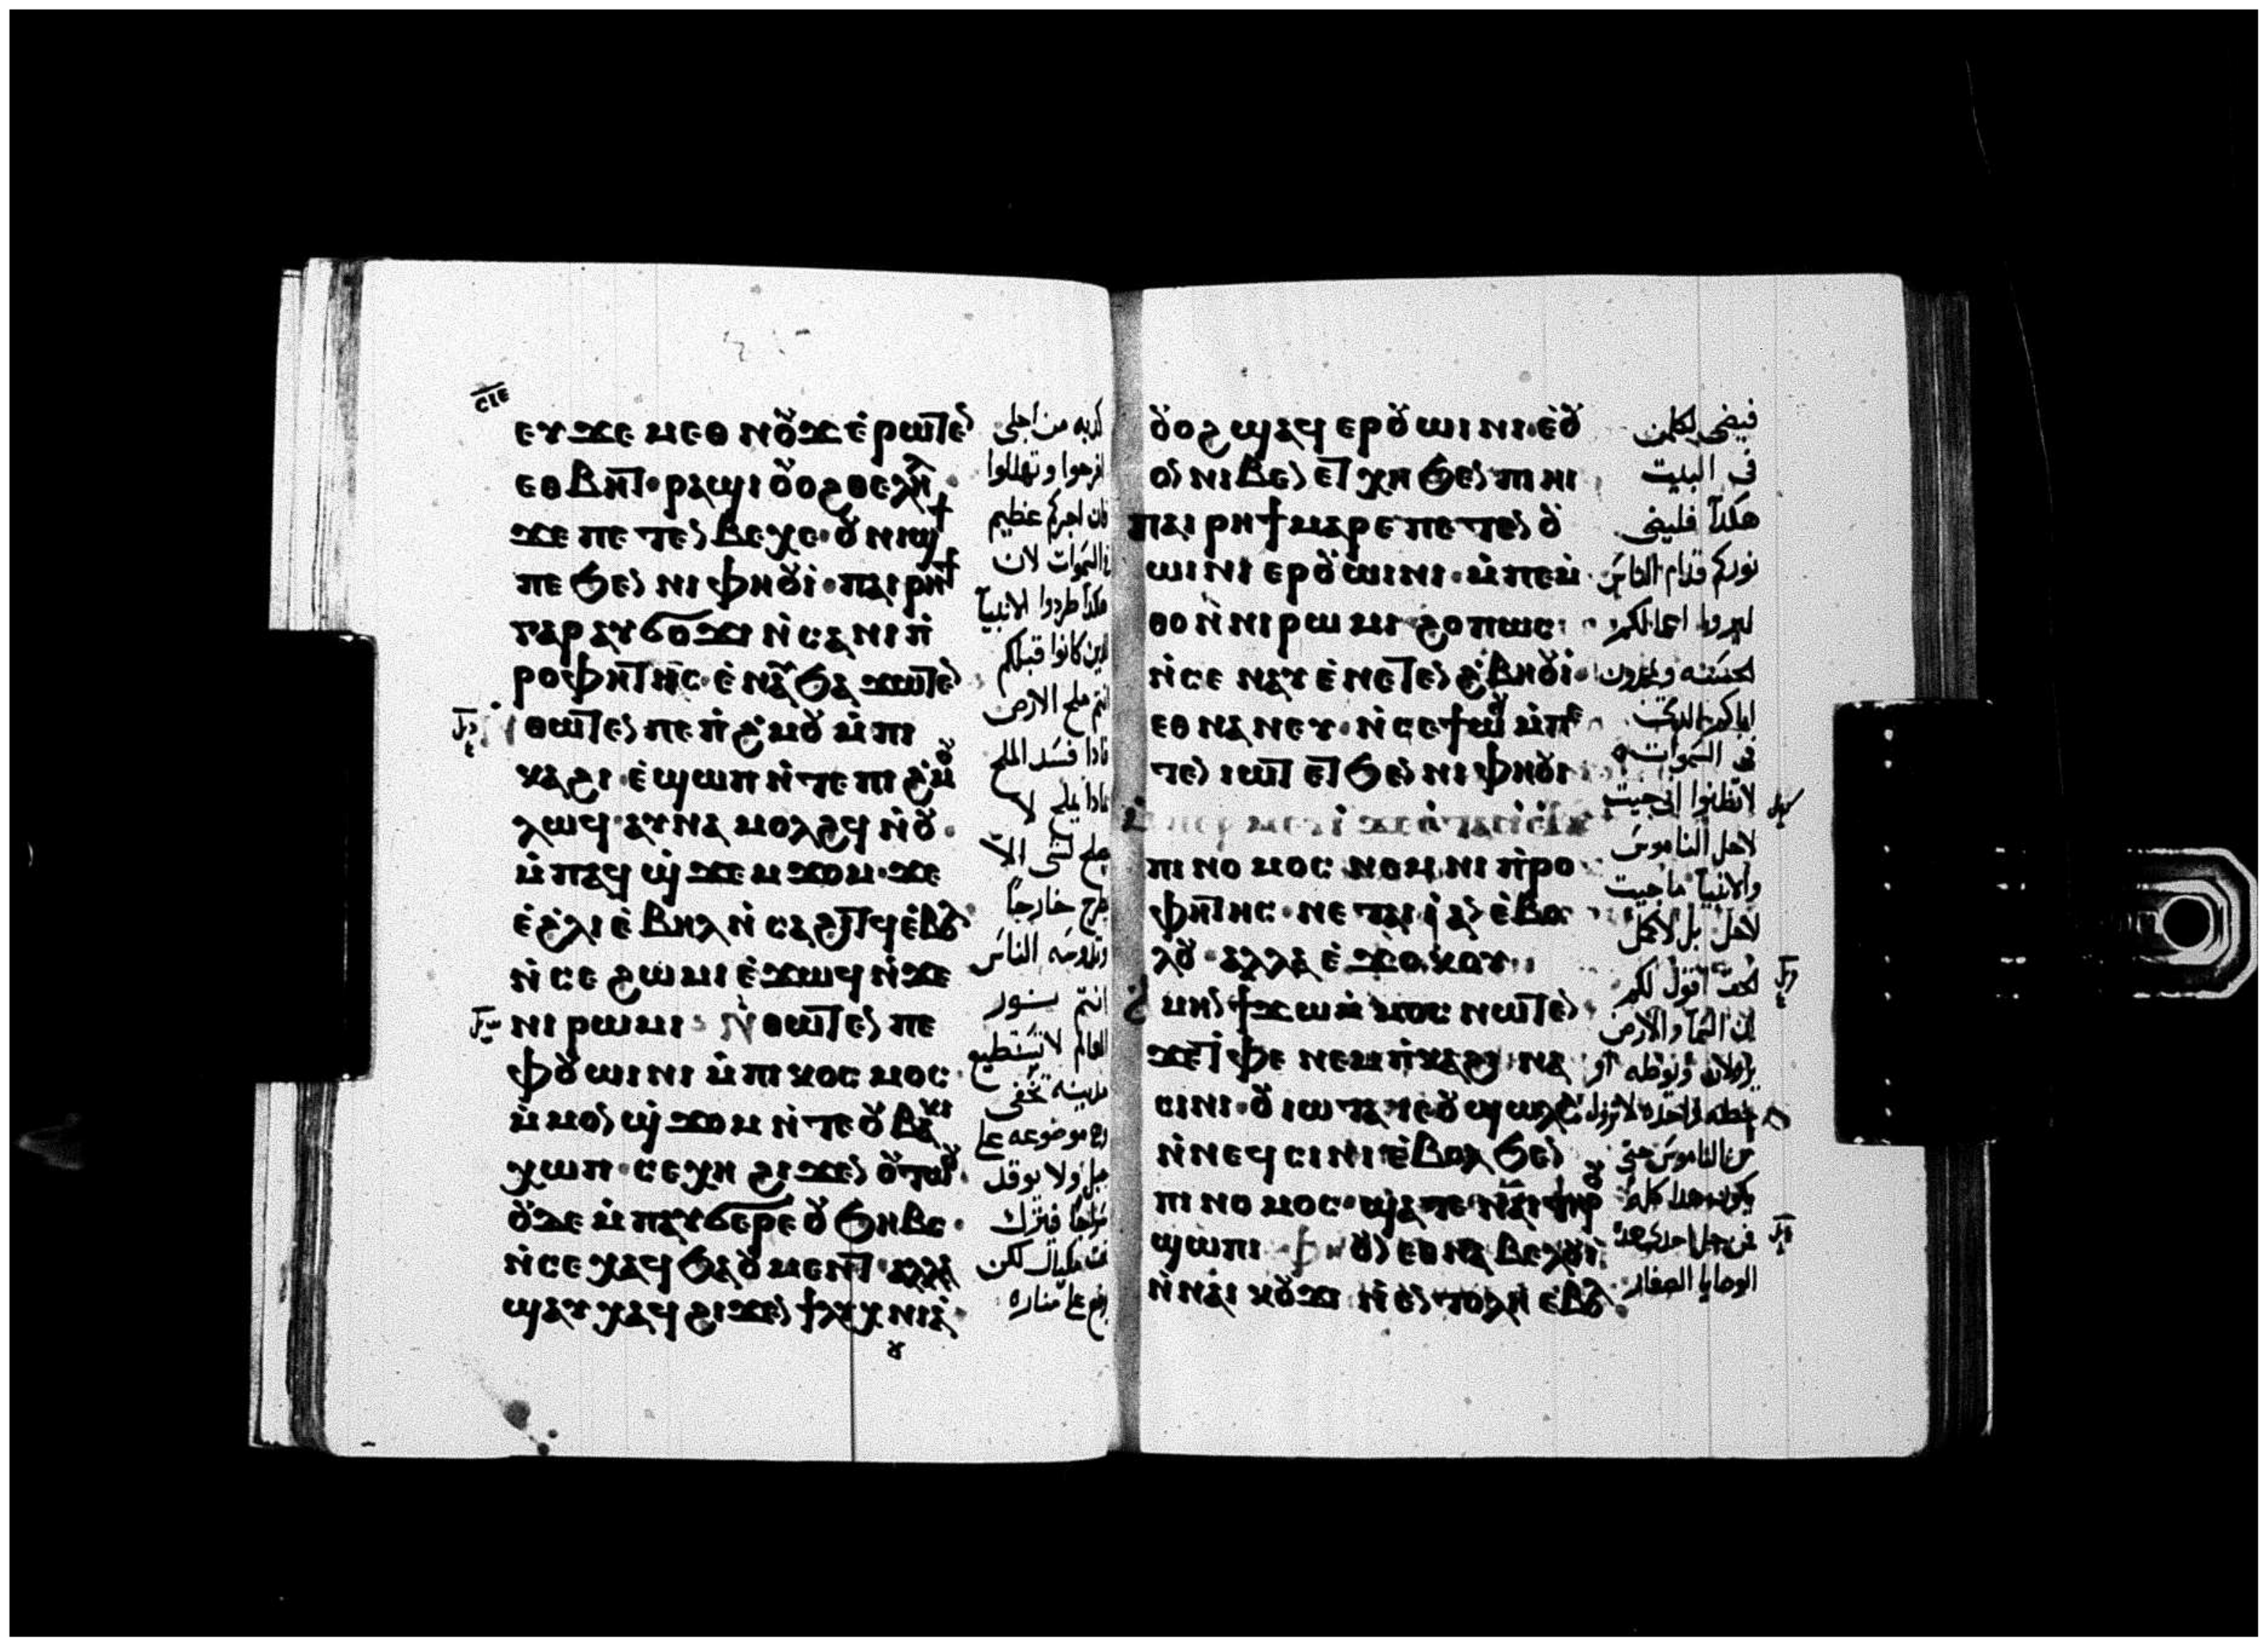 ⲥⲓⲉ
ⲉⲩϫⲉ ⲙⲉⲑ ⲛⲟⲩϫ ⲉⲣⲱⲧⲉⲛ
ⲉⲑⲃⲏⲧ · ⲣⲁϣⲓ ⲟⲩⲟϩ ⲑⲉⲗⲏⲗ
ϫⲉ ⲡⲉⲧⲉⲛⲃⲉⲭⲉ · ⲟⲩⲛⲓϣϯ
ⲡⲉ ϧⲉⲛ ⲛⲓⲫⲏⲟⲩⲓ · ⲡⲁⲓⲣⲏϯ
ⲅⲁⲣ ⲁⲩϭⲟϫⲓ ⲛ̇ⲥⲁ ⲛⲓⲡ̇
ⲣⲟⲫⲏⲧⲏⲥ · ⲉ̇ⲛⲁⲩϧⲁϫⲱⲧⲉⲛ
ⲛ̇ⲑⲱⲧⲉⲛ ⲡⲉ ⲡ̇ϩ̇ⲙⲟⲩ ⲙ̇ⲡⲓ
ⲕⲁϩⲓ · ⲉ̇ϣⲱⲡ ⲛ̇ⲧⲉ ⲡⲓϩ̇ⲙⲟⲩ
ⲗⲱϥ · ⲁⲩⲛⲁ ⲙⲟⲗϩϥ ⲛ̇ⲟⲩ ·
ⲙ̇ⲡⲁϥ ϣ̇ϫⲉⲙϫⲟⲙ · ϫⲉ
ⲉ̇ϩ̇ⲗⲓ ⲉ̇ⲃⲏⲗ ⲛ̇ⲥⲁϩⲓⲧϥ ⲉ̇ⲃⲟⲗ
ⲛ̇ⲥⲉ ϩⲱⲙⲓ ⲉ̇ϫⲱϥ ⲛ̇ϫⲉ
ⲛⲓⲣⲱⲙⲓ : ⲛ̇ⲑⲱⲧⲉⲛ ⲡⲉ
ⲫⲟⲩⲱⲓⲛⲓ ⲙ̇ⲡⲓⲕⲟⲥⲙⲟⲥ ·
ⲙ̇ⲙⲟⲛ ϣ̇ϫⲟⲙ ⲛ̇ⲧⲉ ⲟⲩⲃⲁⲕⲓ
ⲭⲱⲡ · ⲥⲉⲭⲏ ϩⲓϫⲉⲛ ⲟⲩⲧⲱⲟⲩ ·
ⲟⲩⲇⲉ ⲙ̇ⲡⲁⲩϭⲉⲣⲉ ⲟⲩϧⲏⲃⲥ ·
ⲛ̇ⲥⲉ ⲭⲁϥ ϧⲁ ⲟⲩⲙⲉⲛⲧ · ⲁⲗⲗⲁ
ϣⲁⲩ ⲭⲁϥ ϩⲓϫⲉⲛ ϯⲗⲩⲭⲛⲓⲁ̇ ·
كذبه من اجلى
افرحوا وتهللوا
فان اجركم عظيم
فى السموات لان
هكذا طردوا الانبيآ
الذين كانوا قبلكم
انتم ملح الارض
فاذا فسد الملح
فماذا يملح لا
يصلح لشى الا
يطرح خارجاً
وتدوسه الناس
انتم نور
العالم لا تستطيع
مدينه تخفى
وهى موضوعه على
جبل ولا يوقد
سراجاً فيترك
تحت مكيال لكن
يوضع على مناره
ⲟⲩⲟϩ ϣⲁϥ ⲉⲣⲟⲩⲱⲓⲛⲓ · ⲉ̇ⲟⲩ
ⲟⲛ ⲛⲓⲃⲉⲛ ⲉⲧ ⲭⲏ ϧⲉⲛ ⲡⲓⲏⲓ
ⲡⲁⲓⲣⲏϯ ⲙⲁⲣⲉ ⲡⲉⲧⲉⲛ ⲟⲩ
ⲱⲓⲛⲓ ⲉⲣⲟⲩⲱⲓⲛⲓ · ⲙ̇ⲡⲉⲙ̇
ⲑⲟ ⲛ̇ⲛⲓⲣⲱⲙⲓ ϩⲟⲡⲱⲥ ·
ⲛ̇ⲥⲉ ⲛⲁⲩ ⲉ̇ⲛⲉⲧⲉⲛ ϩ̇ⲃⲏⲟⲩⲓ ·
ⲉⲑⲛⲁⲛⲉⲩ · ⲛ̇ⲥⲉϯⲱⲟⲩ ⲙ̇ⲡⲉ
ⲧⲉⲛ ⲓⲱⲧ ⲉⲧ ϧⲉⲛ ⲛⲓⲫⲏⲟⲩⲓ
ⲡⲓⲛⲟⲙⲟⲥ ⲛⲉⲙ ⲛⲓⲡ̇ⲣⲟ
ⲫⲏⲧⲏⲥ · ⲛⲉⲧⲁⲓ ⲓ̇ ⲁⲛ ⲉ̇ⲃⲟ
ⲗⲟⲩ · ⲁⲗⲗⲁ ⲉ̇ϫⲟⲕⲟⲩ
ⲁⲙⲏⲛ ϯϫⲱ ⲙ̇ⲙⲟⲥ ⲛⲱⲧⲉⲛ
ϫⲉ ⲧ̇ⲫⲉ ⲛⲉⲙ ⲡ̇ⲕⲁϩⲓ ⲛⲁ
ⲥⲓⲛⲓ · ⲟⲩⲓⲱⲧⲁ ⲓⲉ ⲟⲩϣⲱⲗϩ
ⲛ̇ⲛⲉϥⲥⲓⲛⲓ ⲉ̇ⲃⲟⲗ ϧⲉⲛ
ⲡⲓⲛⲟⲙⲟⲥ · ϣⲁⲧⲉ ⲛⲁⲓ ⲧⲏⲣⲟⲩ
ϣⲱⲡⲓ · ⲫⲏ ⲟⲩⲛ ⲉⲑⲛⲁ ⲃⲉⲗ ⲟⲩⲓ̇
ⲛ̇ⲛⲁⲓ ⲕⲟⲩϫⲓ ⲛ̇ⲉⲛⲧⲟⲗⲏ ⲉ̇ⲃⲟⲗ
فيضى لكلمن
فى البيت
هكذا فليضى
نوركم قدام الناس
ليروا اعمالكم
الحسنه ويمجدون
اباكم الذى
فى السموات
لا تظنوا انى جيت
لاحل الناموس
والانبيآ ما جيت
لاحل بل لاكمل
الحق اقول لكم
ان السمآ والارض
يزولان ونقطه او
خطه واحده لا تزول
من الناموس حتى
يكون هذا كله
فمن حل احدى هذه
الوصايا الصغار